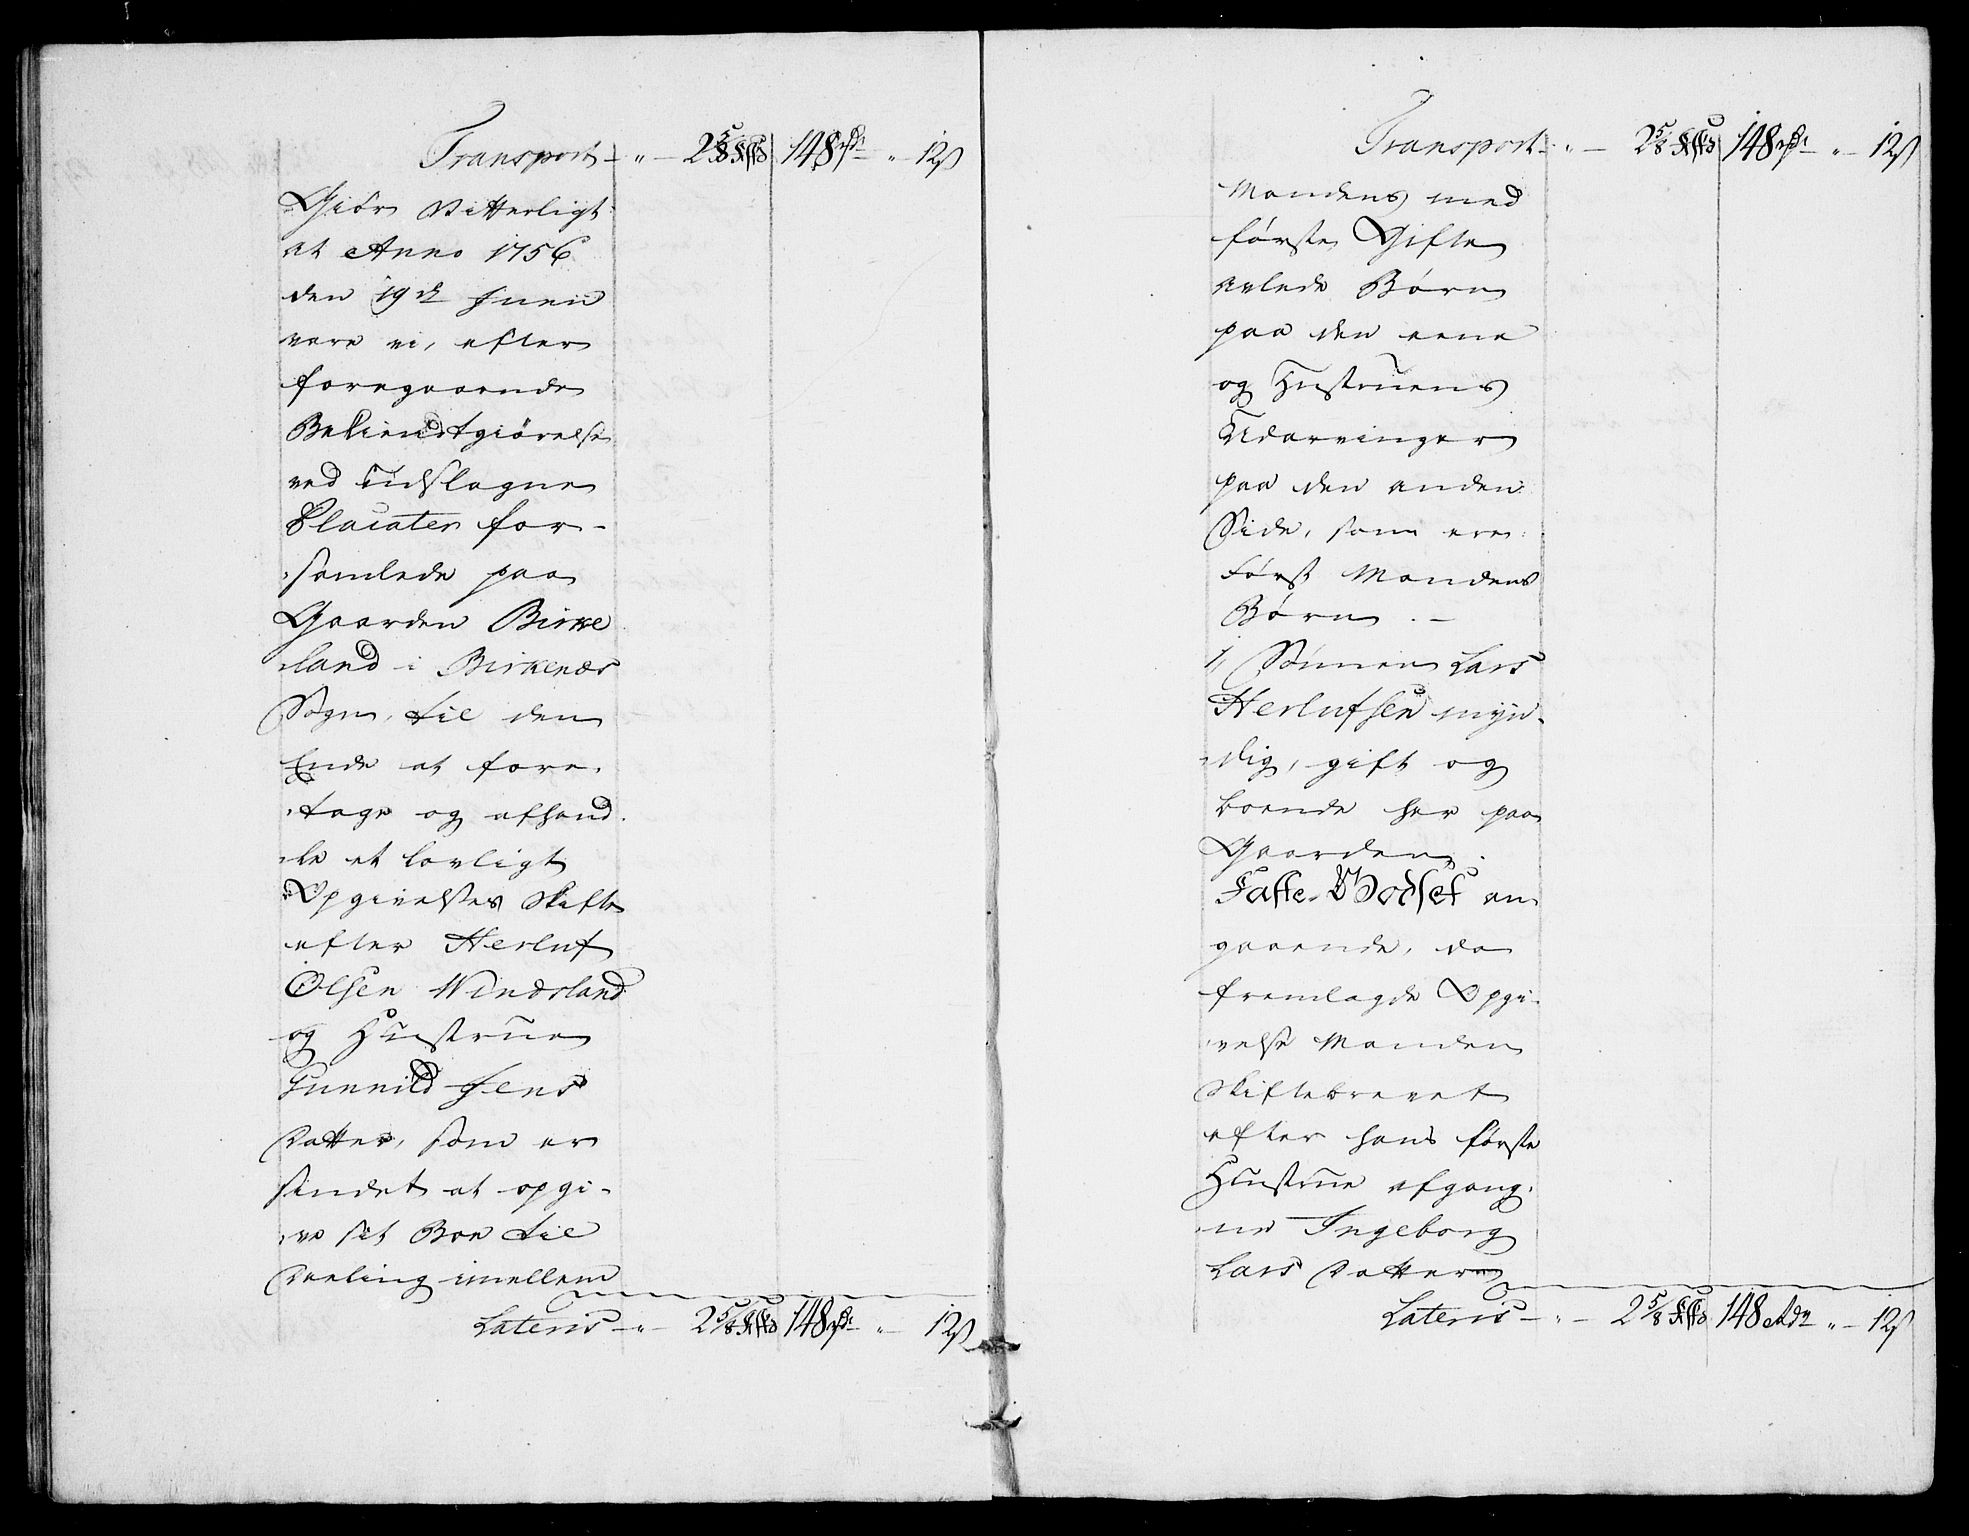 Transport - " - 2 5/8 Skffd 148 rdr " - 12 ß
Giör Vitterligt
at Anno 1756
den 19de Junii
vare vi, efter
foregaaende
Bekiendtgiörelse
ved Tidslagne
Placater for-
samlede paa
Gaarden Birke
land i Birkenæs
Sogn, til den
Ende at fore-
tage og afhand-
le et lovligt
Opgivelses Skifte
efter Herluf
Olsen Windsland
og Hustrue
Gunnild Jens
Datter, som er
sindet at opgi-
ve sit Boe til
Deeling imellem
Lateris - " - 2 5/8 Skffd 148 rdr " - 12 ß
Transport - " - 2 5/8 Skffd 148 rdr " - 12 ß
Mandens med
første Gifte
avlede Børn
paa den eene
og Hustruens
Udarvinger
paa den anden
Side, som ere
Først Mandens
Børn. -
1, Sönnen Lars
Herlufsen myn-
dig, gift og
boende her paa
Gaarden.
Faste Godset an-
gaaende, da
fremlagde Opgi-
velse Manden
Skiftebrevet
efter hans første
Hustrue afgang-
ne Ingeborg
Lars Datter
Lateris - " - 2 5/8 Skffd 148 Rdr " - 12 ß